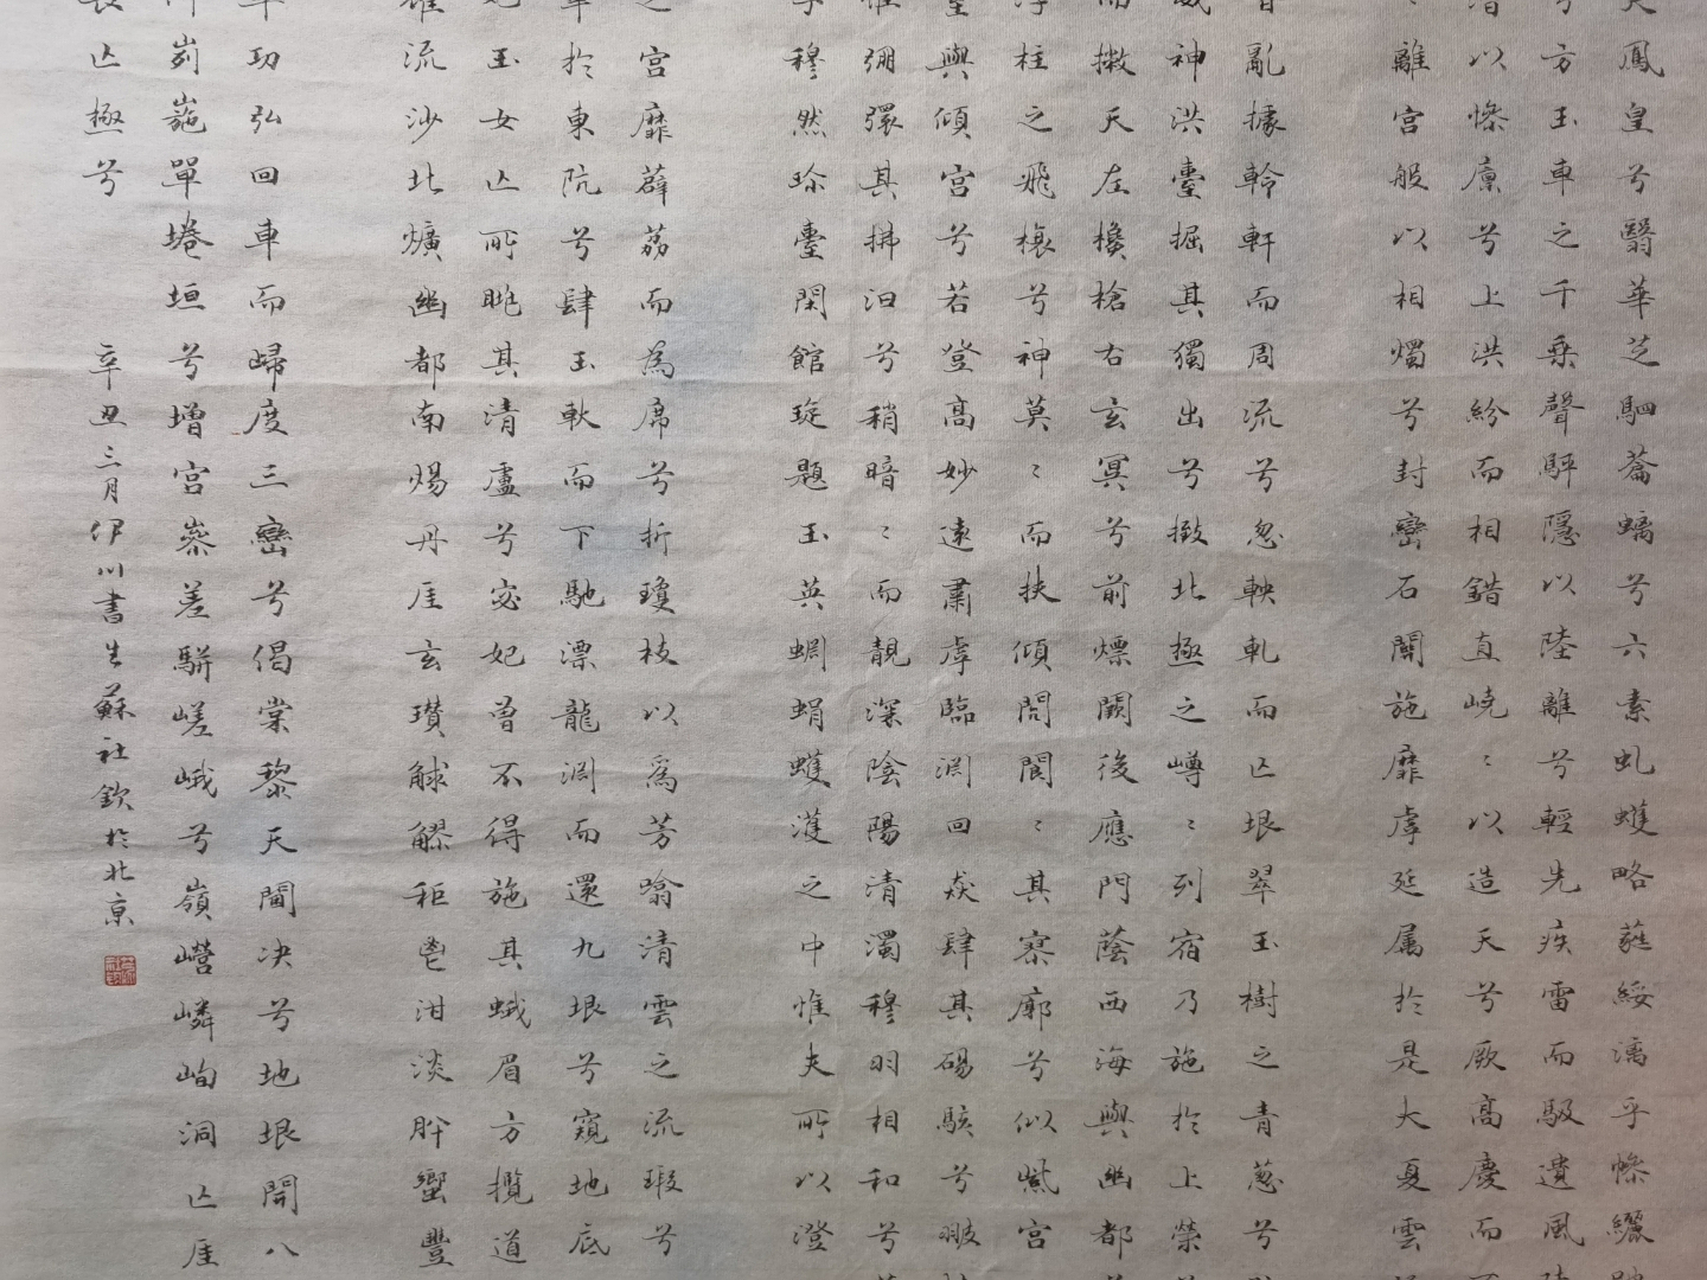 鳳皇兮翳華芝駟蒼螭兮六素虯蠖略蕤綏漓乎幓纚
兮方玉車之千乘聲駍隱以陸離兮輕先疾雷而馺遺風
清以幓廩兮上洪紛而相錯直嶢〻以造天兮厥高慶而
離宮般以相燭兮封巒石關施靡虖延属於是大夏雲
亂據軨軒而周流兮忽軮軋而亡垠翠玉樹之青蔥兮
威神洪臺掘其獨出兮㨖北極之嶟〻列宿乃施於上榮
而撇天左欃槍右玄冥兮前熛闕後應門蔭西海與幽都
浮柱之飛榱兮神莫〻而扶傾閌閬〻其寥廓兮似紫宮
與傾宮兮若登高妙遠肅虖臨淵回猋肆其碭駭兮翍
惟弸彋其拂汩兮稍暗〻而靚深陰陽清濁穆羽相和兮
乎穆然珍臺閑館琁題玉英蜵蜎蠖濩之中惟夫所以澄
之宮靡薜荔而為席兮折瓊枝以爲芳噏清雲之流瑕兮
車於東阬兮肆玉軑而下馳漂龍淵而還九垠兮窺地底
玉女亡所眺其清盧兮宓妃曾不得施其蛾眉方攬道
雍流沙北爌幽都南煬丹厓玄瓚觩䚧秬鬯泔淡肸蠁豐
功弘回車而歸度三巒兮偈棠黎天閫决兮地垠開八
峛崺單埢垣兮增宮嵾差駢嵯峨兮嶺巆嶙峋洞亡厓
亡極兮 辛丑三月伊川書生蘇社欽於北京